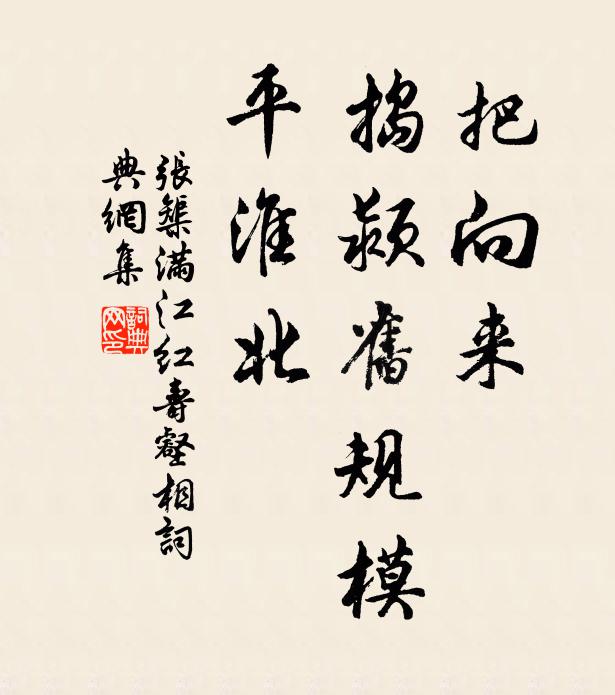 把向来
搗潁舊規模
平淮北
張榘滿江紅壽壑相詞
典網集
詞典
网印